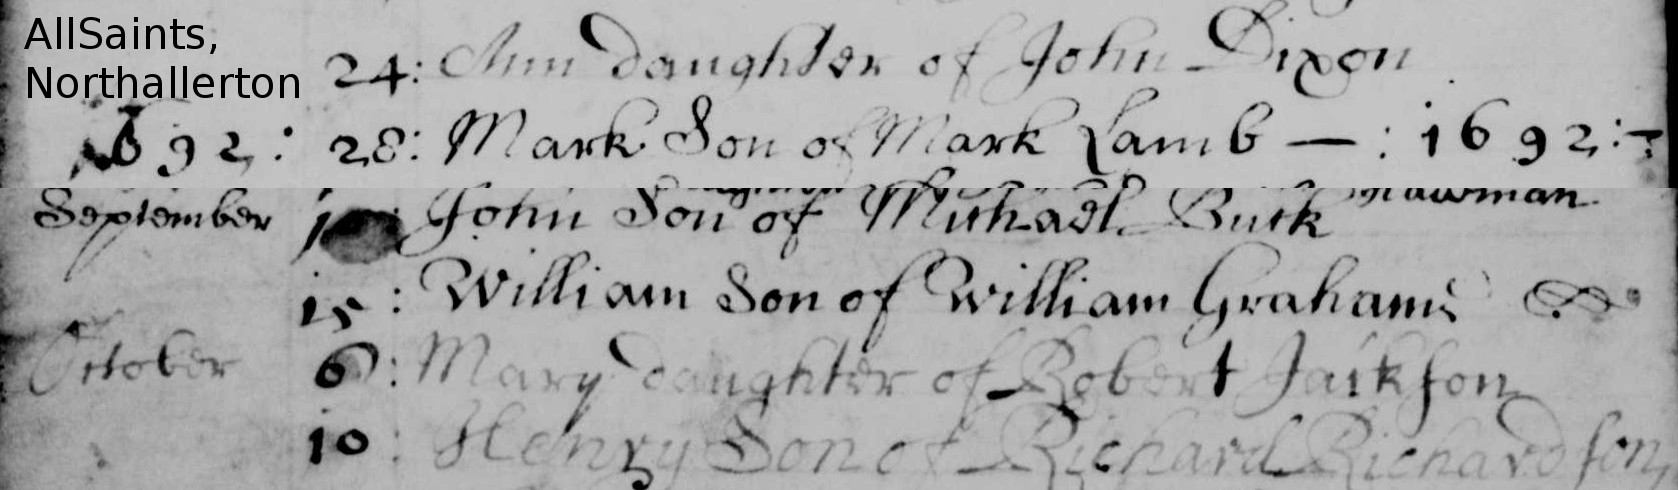 AllSaints,
Northallerton
24: Ann daughter of John Dixon
1692: 28: Mark Son of Mark Lamb — : 1692:
September John Son of Michael Buck
15: William Son of William Grahame
October 6: Mary daughter of Robert Jackson
10: Henry Son of Richard Richardson